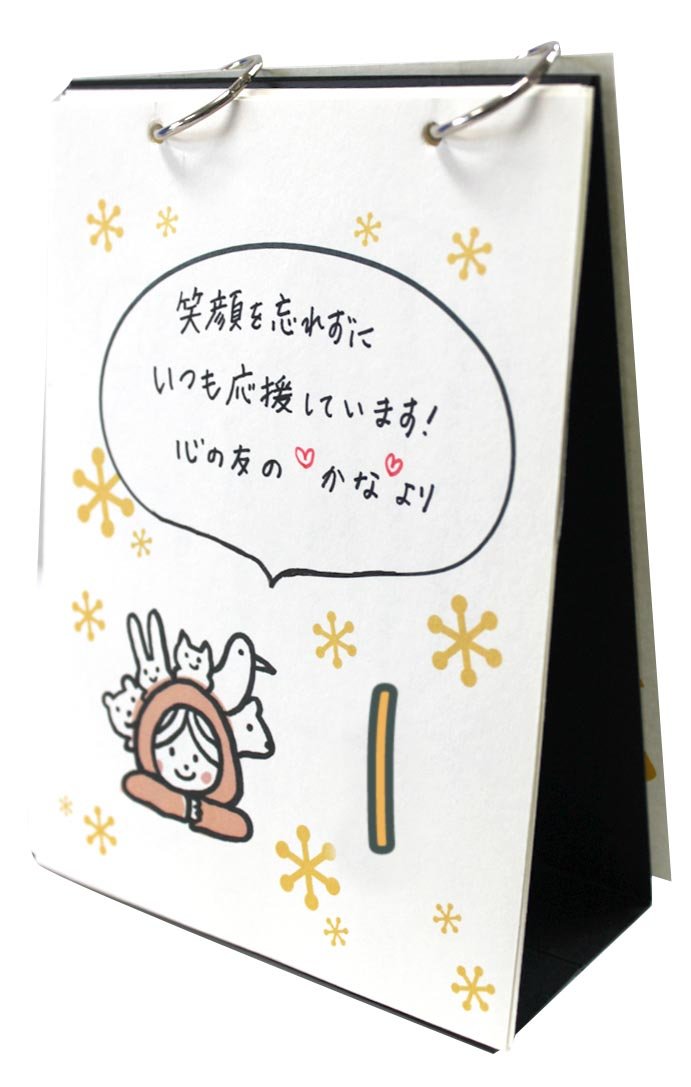 笑顔を忘れずに
いつも応援しています!
心の友の♡かな♡より
1